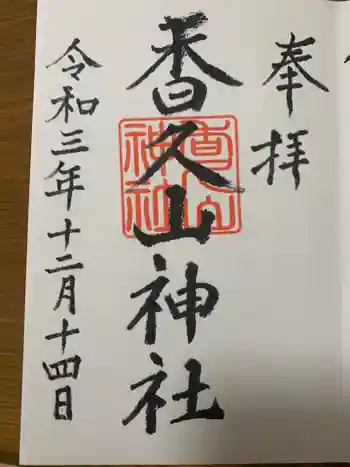 奉拝
香久山神社
令和三年十二月十四日